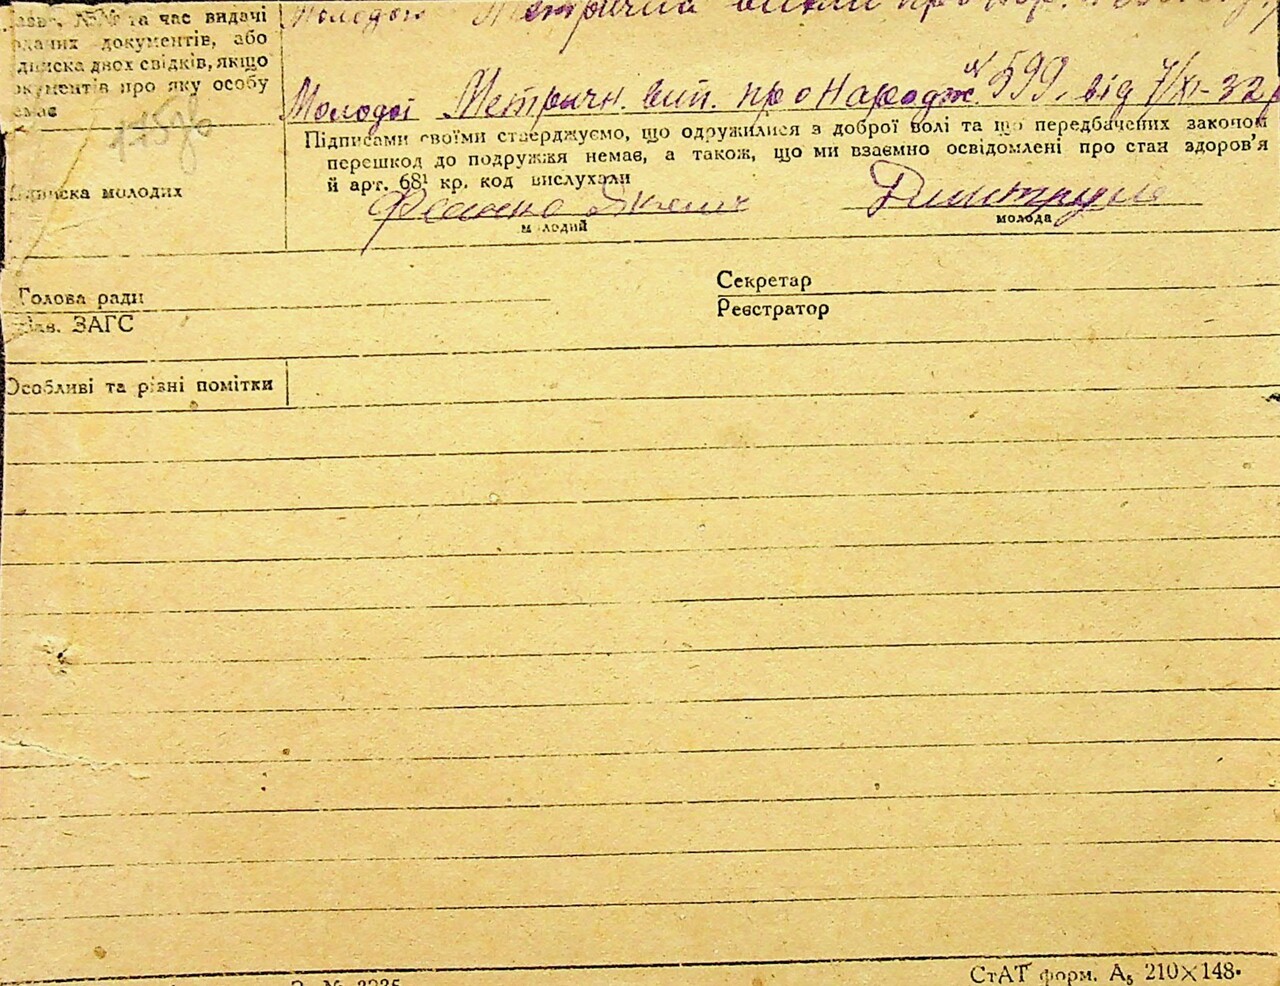 та час видачі
документів, або
двох свідків, якщо
про яку особу
Молодого Метрична
Молодої Метричн. вип. про Народж. № 599. від 7/XI-32 р
Підписами своїми стверджуємо, що одружилися з доброї волі та що передбачених законом
перешкод до подружжя немає, а також, що ми взаємно освідомлені про стан здоров'я
й арт. 68¹ кр. код вислухали
молодих
молодий
молода
Голова ради
Секретар
Зав. ЗАГС
Реєстратор
Особливі та різні помітки
СтАТ форм. А₅ 210×148.